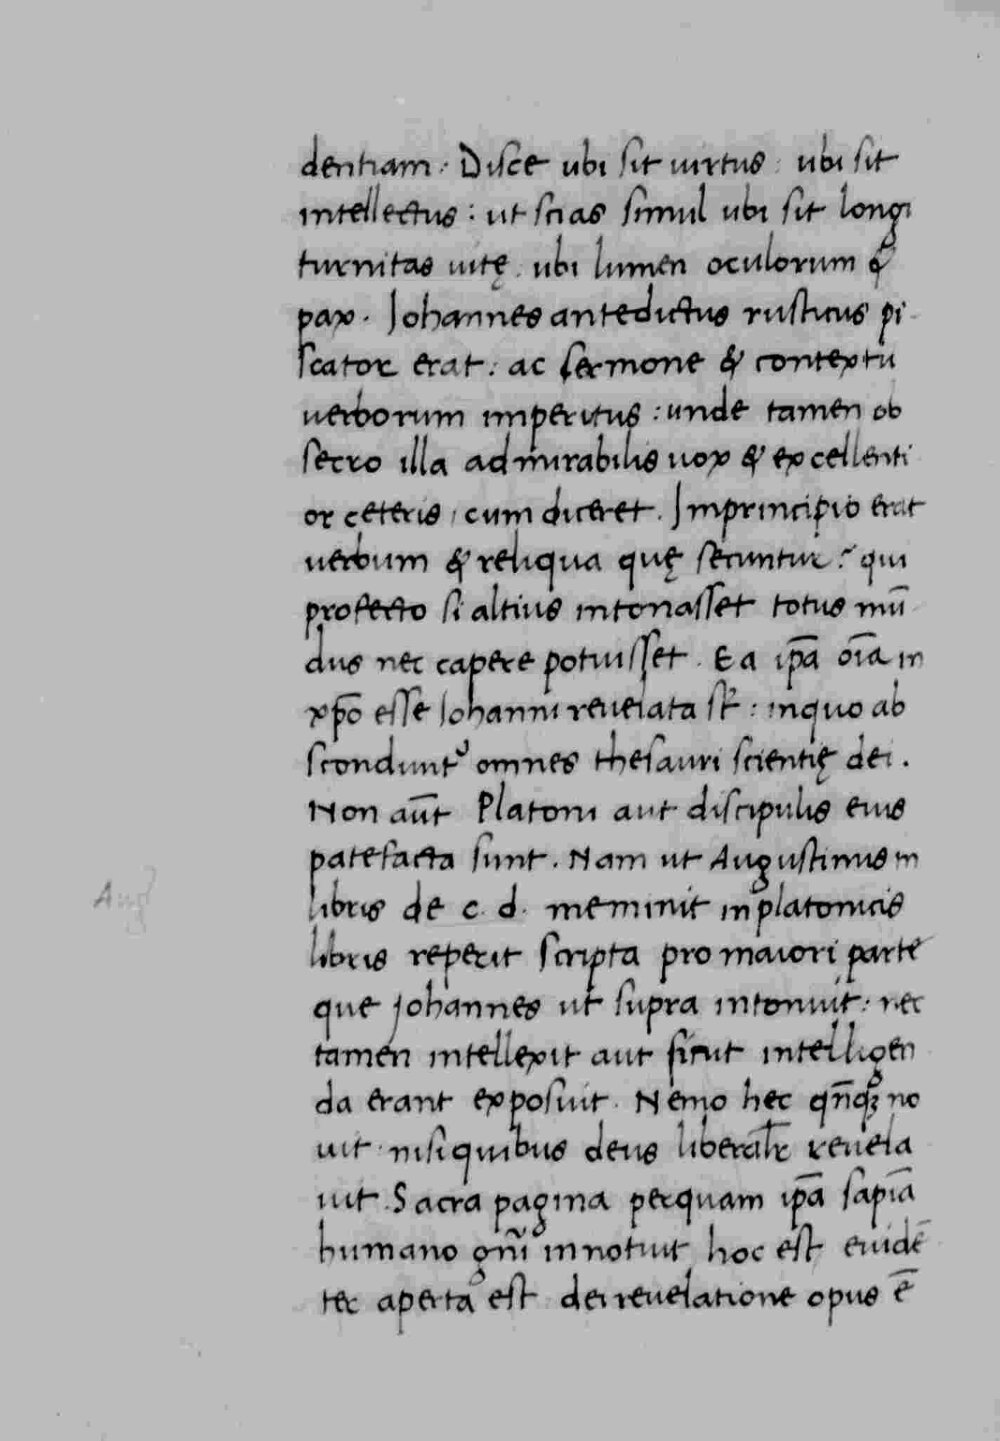 dentiam. Disce ubi sit uirtus: ubi sit
intellectus: ut scias simul ubi sit longi
turnitas uitę. ubi lumen oculorum &
pax. Johannes antedictus rusticus pi
scator erat: ac sermone & contextu
uerborum imperitus: unde tamen ob
secro illa admirabilis uox & excellenti
or ceteris, cum diceret. Jmprincipio erat
uerbum & reliqua quę secuntur? qui
profecto si altius intonasset totus mū
dus nec capere potuisset. Ea ip̄a oīa in
xp̄o esse Johanni reuelata st̄: inquo ab
sconduntᷣ omnes thesauri scientię dei.
Non aūt Platoni aut discipulis eius
patefacta sunt. Nam ut Augustinus in
Aug
libris de c. d. meminit in platonicis
libris reperit scripta pro maiori parte
que Johannes ut supra intonuit: nec
tamen intellexit aut sicut intelligen
da erant exposuit. Nemo hec qn̄qꝫ no
uit nisi quibus deus liberalr̄ reuela
uit. Sacra pagina perquam ip̄a sapīa
humano gn̄i innotuit hoc est euidē
ter aperta est dei reuelatione opus ē